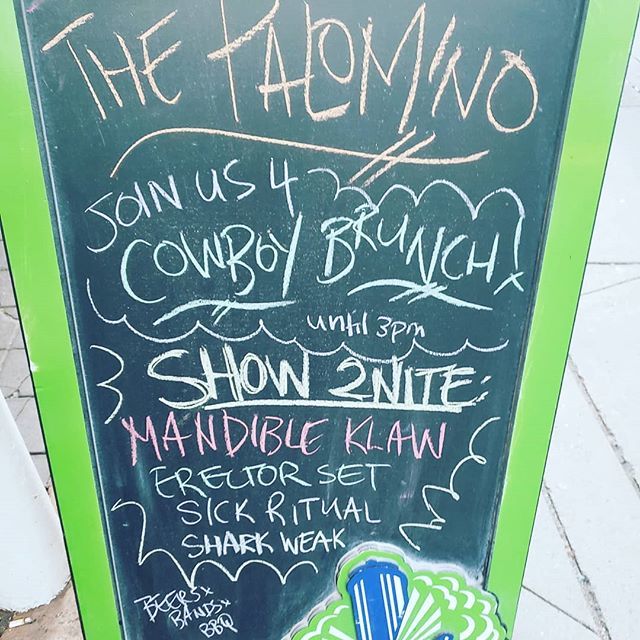 THE PALOMINO
JOIN US 4
COWBOY BRUNCH!
until 3pm
SHOW 2NITE:
MANDIBLE KLAW
ERECTOR SET
SICK RITUAL
SHARK WEAK
BEERS*
BANDS*
BBQ